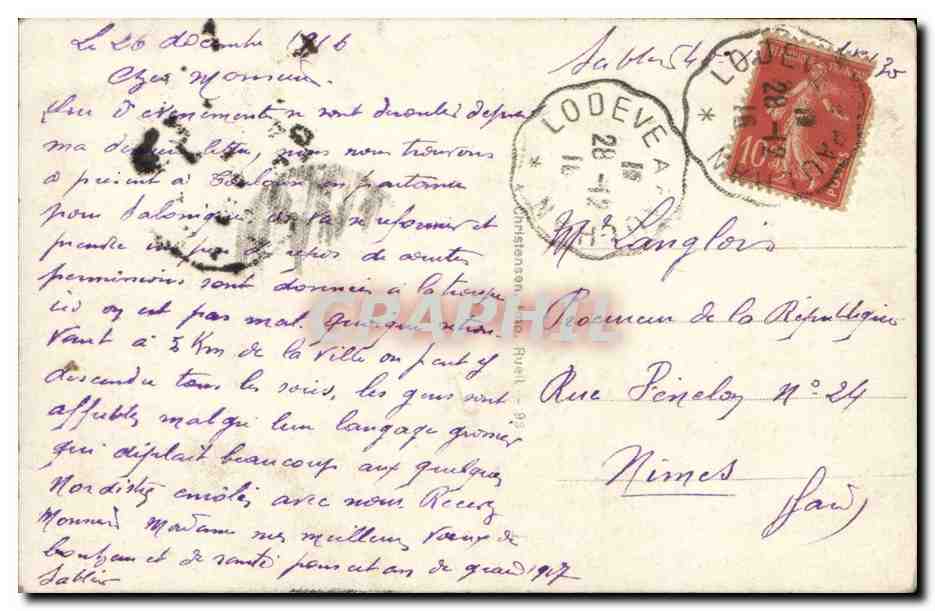 Le 26 décembre 1916
Cher Monsieur.
d'évènements se sont déroulés depuis
ma dernière lettre, nous nous trouvons
à présent à Toulon en partance
pour Salonique on va se reformer et
prendre un peu de repos de courtes
permissions sont données à la troupe
ici on est pas mal. quoique
à 5 Km de la Ville on peut y
descendre tous les soirs, les gens sont
affables malgré leur langage grossier
qui déplait beaucoup aux quelques
Nordistes avec nous. Recevez
Monsieur Madame mes meilleurs Vœux de
bonheur et de santé pour cet an de grâce 1917
Sablier
Sablier
LODEVE A
28-12
16
LODEVE
28-12
16
10
POSTES
Mr Langlois
Procureur de la République
Rue Fénelon N° 24
Nîmes
(Gard)
Christensen
Rueil - 93
CPAPHIL